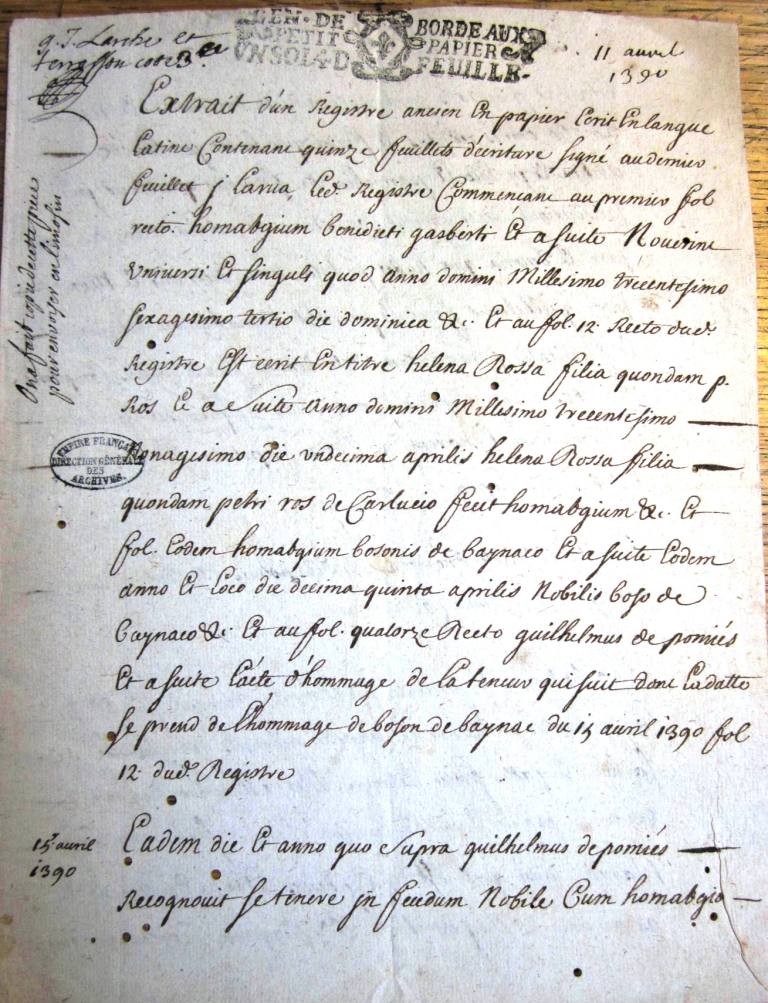 q. T. Larche et
terrasson cotte 3.e
GEN. DE BORDEAUX
PETIT PAPIER
UN SOL 4 D FEUILLE
11 avril
1390
Extrait d'un Registre ancien En papier Ecrit En langue
latine Contenant quinze feuillets d'ecriture signé au dernier
feuillet j Larua, led. Registre Commencant au premier fol
recto. homabgium benedicti gasberti Et a suite Noverint
vniversi Et singuli quod anno domini Millesimo trecentesimo
sexagesimo tertio die dominica &c. Et au fol. 12. Recto dud.
Registre Est ecrit En titre helena Rossa filia quondam p.
Ros Et a suite anno domini Millesimo trecentesimo
Nonagesimo die vndecima aprilis helena Rossa filia
quondam petri ros de Carlucio fecit homabgium &c. Et
fol. Eodem homabgium bosonis de baynaco Et a suite Eodem
anno Et Loco die decima quinta aprilis Nobilis boso de
baynaco &c. Et au fol. quatorze Recto guilhelmus de pomiés
Et a suite l'acte d'hommage de la teneur qui suit dont La datte
se prend de l'hommage de boson de baynac du 15 avril 1390 fol
12. dud. Registre
On a fait copie de cette piece
pour envoyer en limosin
EMPIRE FRANÇAIS
DIRECTION GÉNÉRALE
DES
ARCHIVES.
15.e avril
1390
Eadem die Et anno quo Supra guilhelmus de pomiés
Recognovit se tenere jn feudum Nobile Cum homabgio